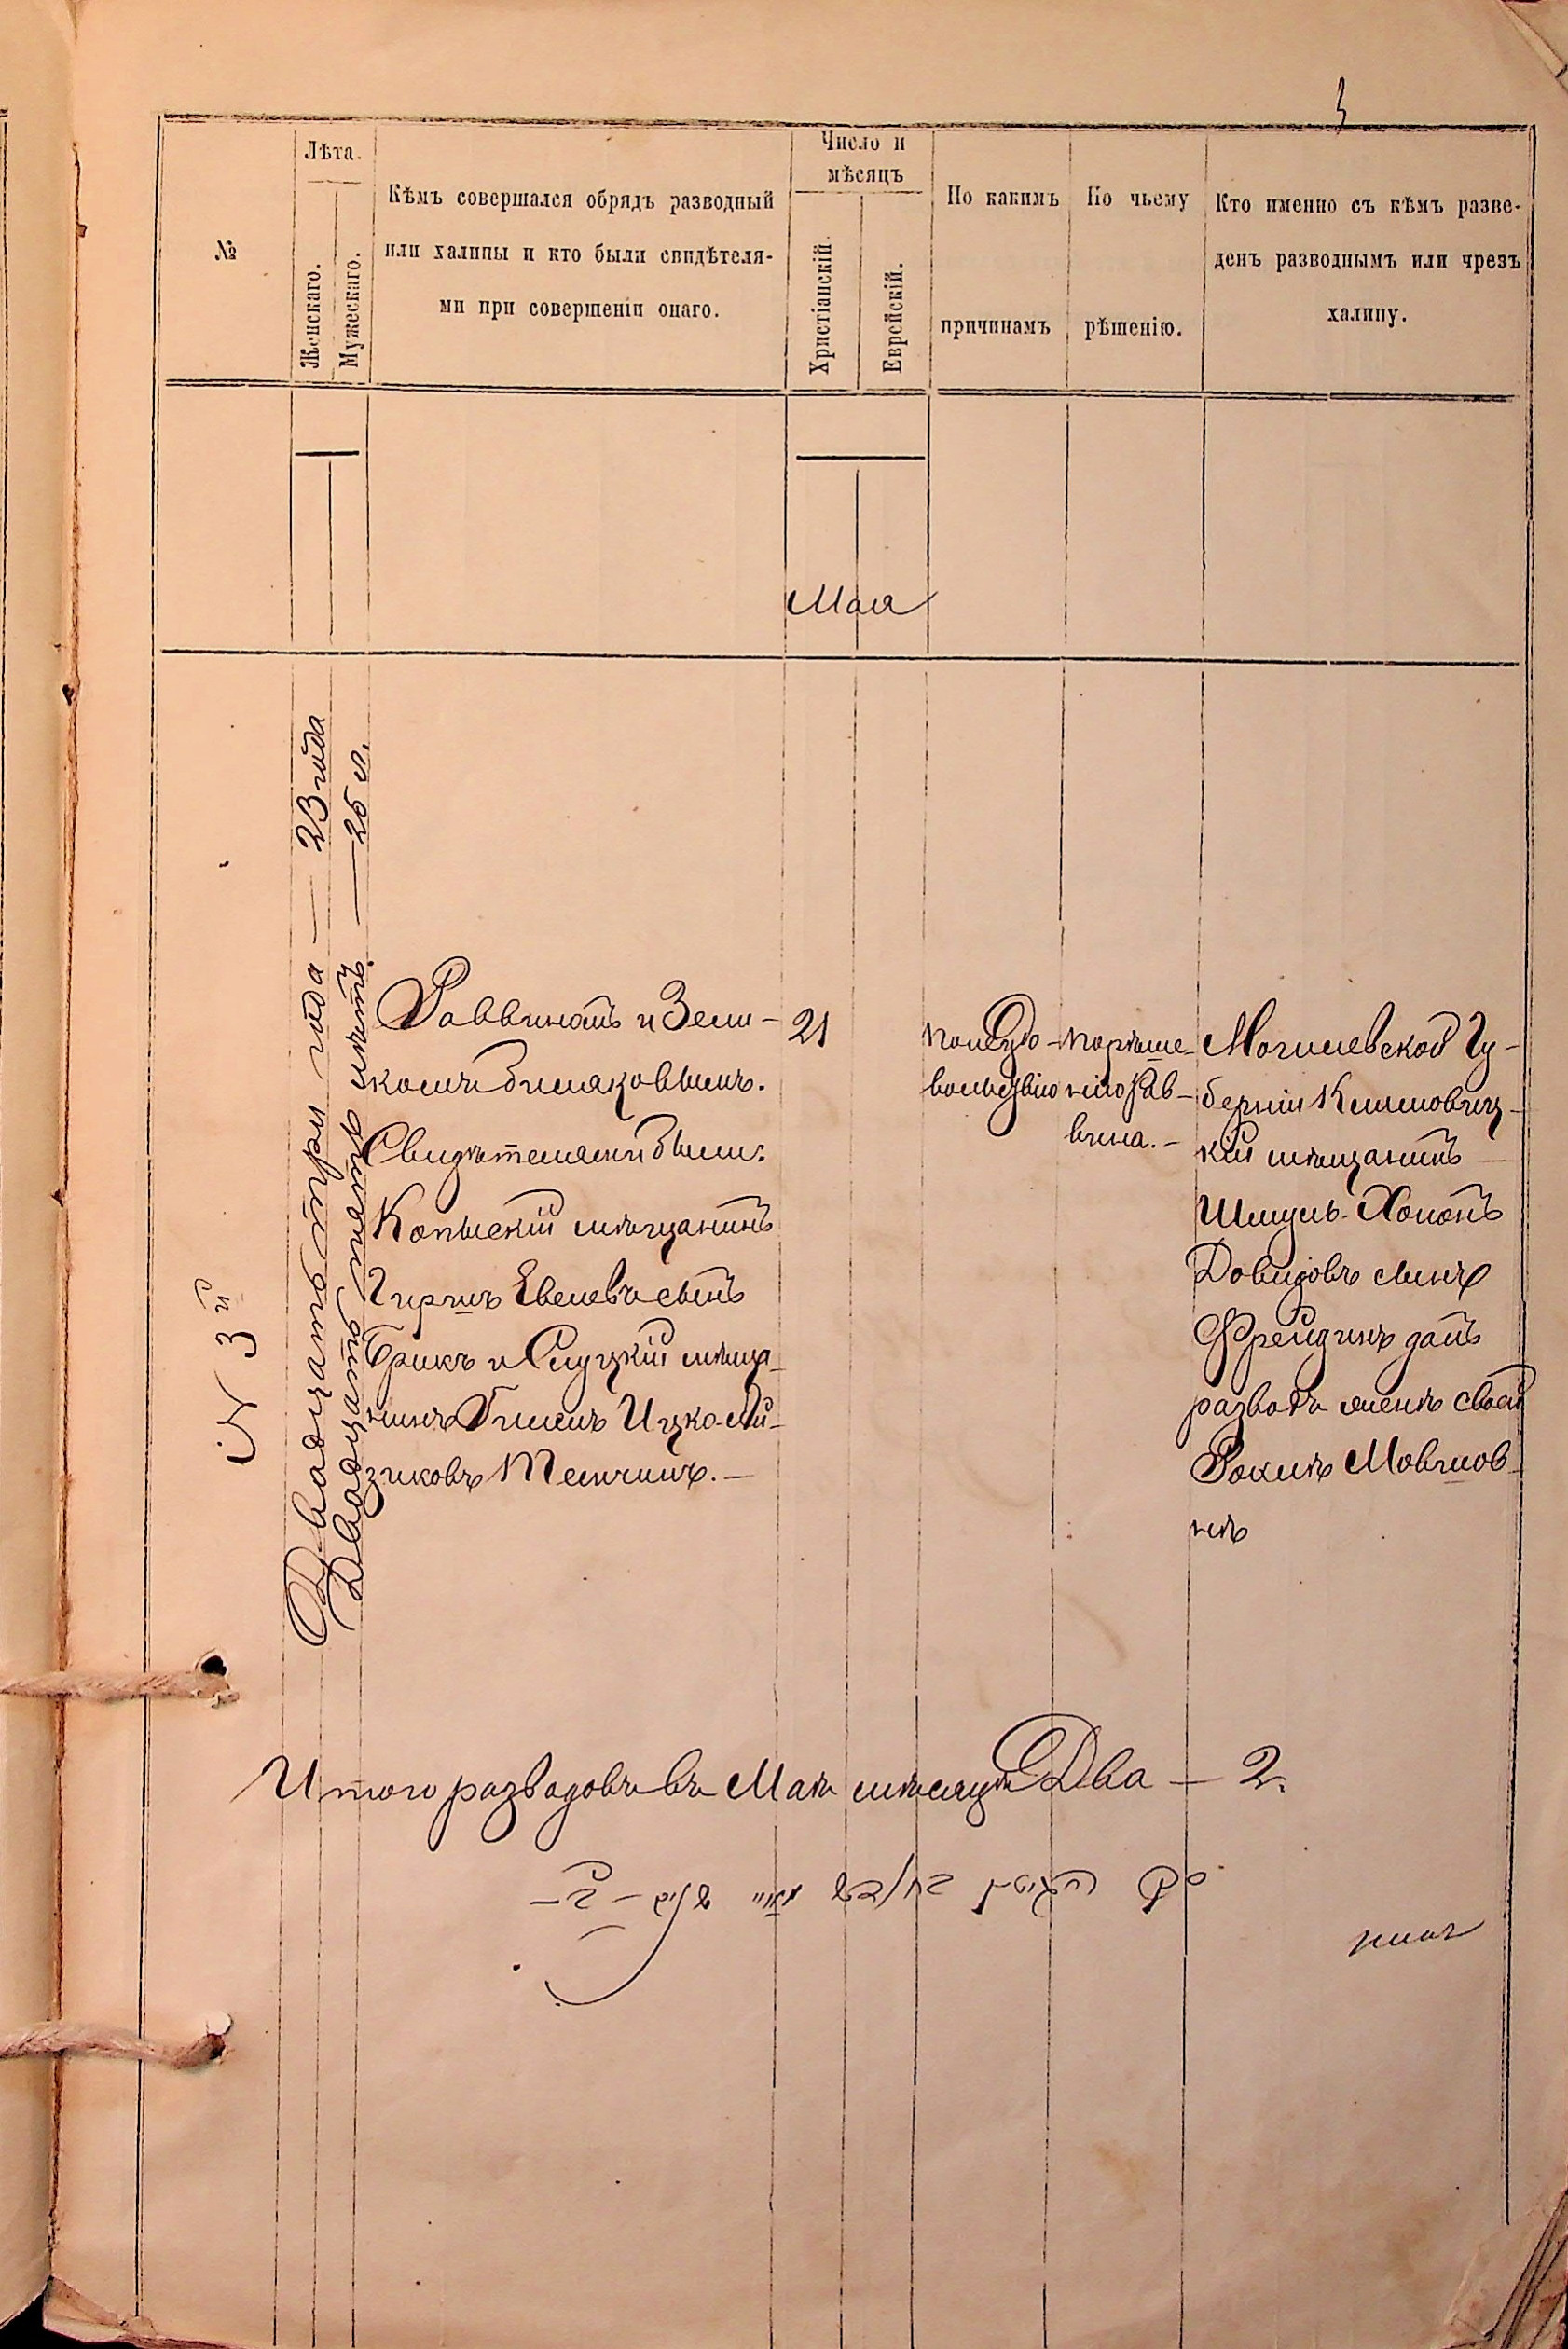 3
№
Лѣта.
Женскаго.
Мужескаго.
Кѣмъ совершался обрядъ разводный
или халицы и кто были свидѣтеля-
ми при совершеніи онаго.
Число и
мѣсяцъ
Христіанскій.
Еврейскій.
По какимъ
причинамъ
По чьему
рѣшенію.
Кто именно съ кѣмъ разве-
денъ разводнымъ или чрезъ
халицу.
Мая
№ 3й
Двадцать три года — 23 года
Двадцать пять лѣтъ. — 25 л.
Раввинатъ и Зели-
комъ
Свидѣтелями были:
Копыскій мѣщанинъ
Гиршъ Евелевъ сынъ
Брикъ и Слуцкій мѣща-
нинъ Ицко-Ай-
зиковъ
21
по неудо-
вольствію
по рѣше-
нію Рав-
вина. —
Могилевской Гу-
берніи Климовиц-
кій мѣщанинъ
Шмуль-Хононъ
Довидовъ сынъ
Фрейдинъ далъ
разводъ женѣ своей
Рохиль Мовшов-
нѣ
Итого разводовъ въ Маѣ мѣсяцѣ Два — 2.